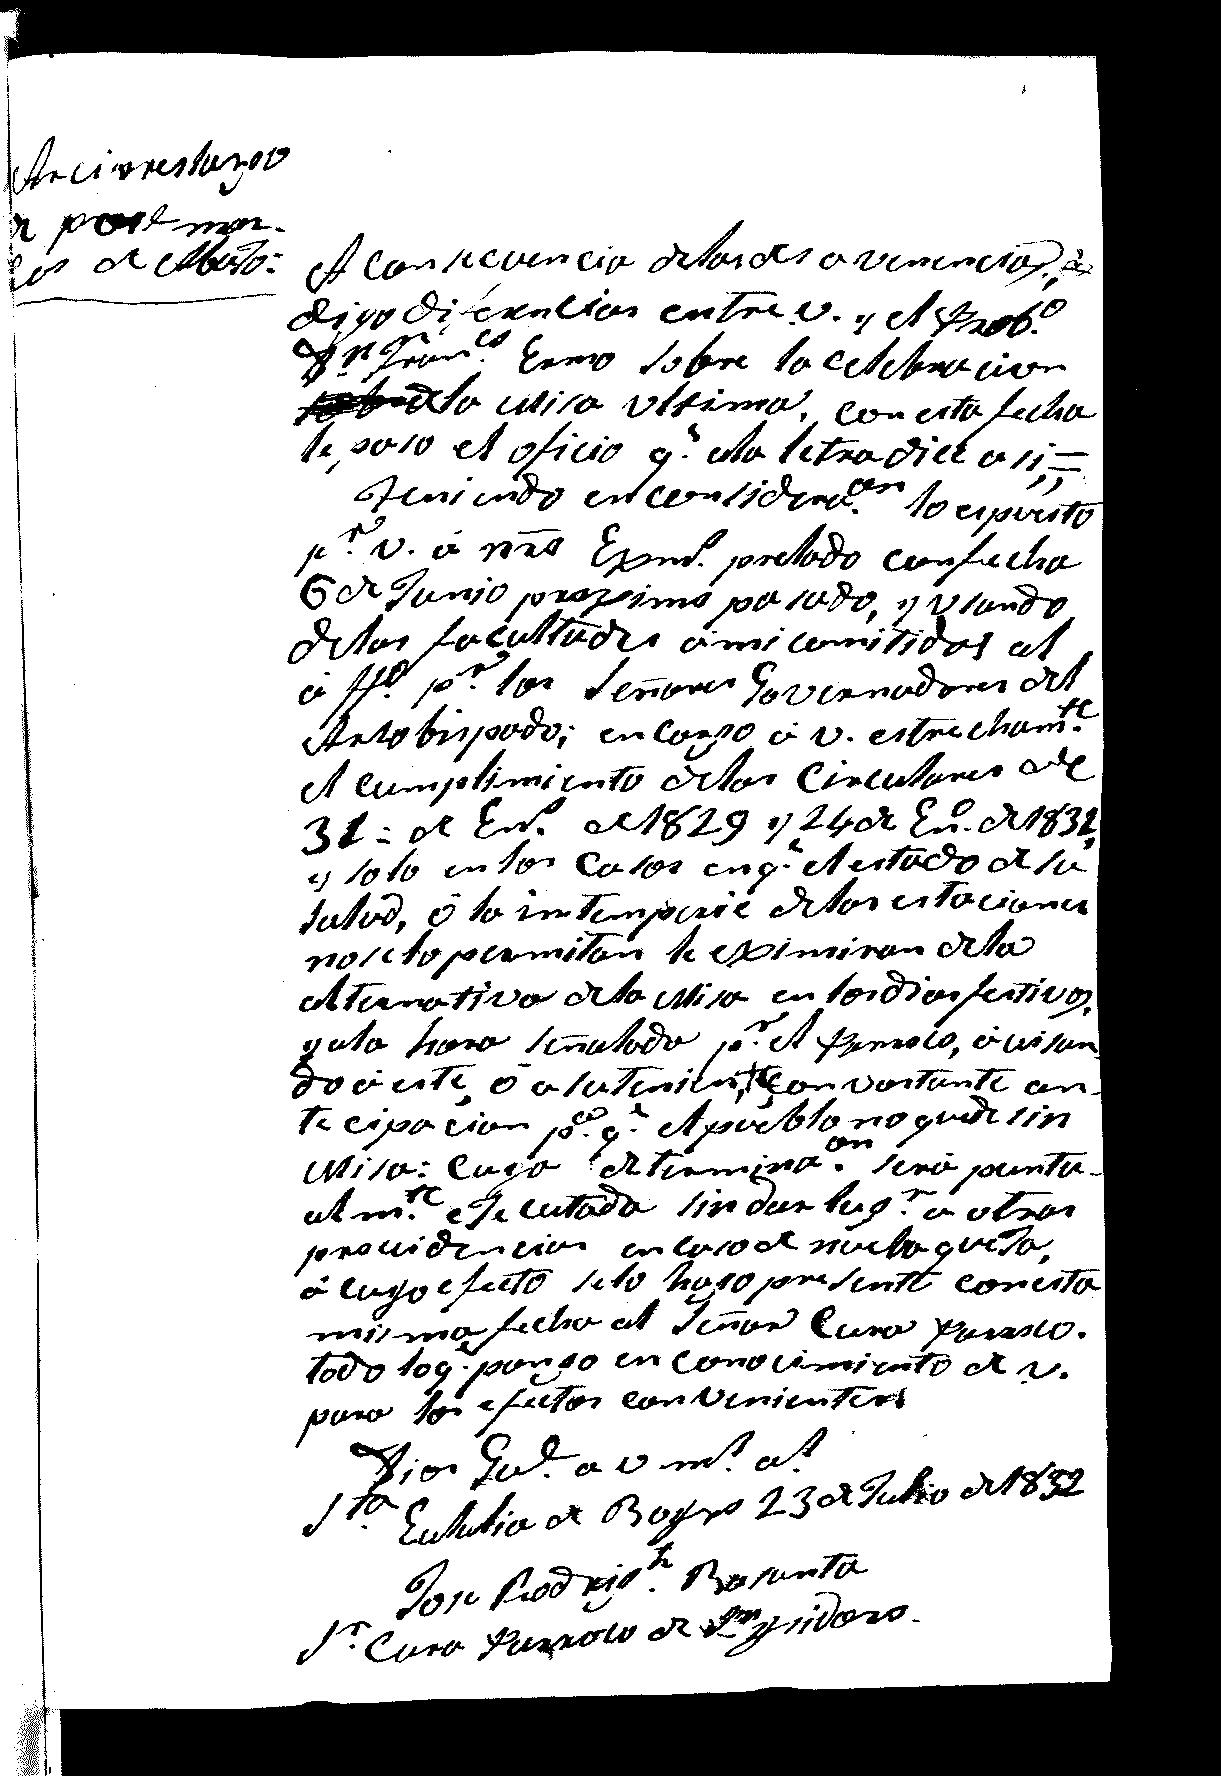 Arciprestazgo
de
cos de Abajo:
A consecuencia delas desavenencias,
digo diferencias entre v. y el Presb.º
Dn. Fran.co Ermo sobre la celebracion
dela Misa ultima, con esta fecha
le paso el oficio q.e ala letra dice asi;=
Teniendo en considera.on lo espuesto
p.r v. á nro Exmo. prelado con fecha
6 de Junio proximo pasado, y usando
delas facultades ami comitidas al
p.r los Señores Governadores del
Arzobispado; encargo á v. estrecham.te
el cumplimiento delas Circulares de
31 = de En.º de 1829 y 24 de En.º de 1831,
y solo en los casos en q.e el estado de su
salud, ó la intemperie delas estaciones
no se lo permitan le eximiran dela
alternativa dela Misa en los dias festivos,
y ala hora señalada p.r el Parroco, avisan
do á este, ó a su teniente con vastante an-
tecipacion p.a q.e el pueblo no quede sin
Misa: cuya determina.on será puntu-
alm.te ejecutada sin dar lug.r a otras
providencias en caso de nueba queja,
á cuyo efecto selo hago presente con esta
misma fecha al Señor Cura Parroco.
todo loq.e pongo en conocimiento de v.
para los efectos convenientes
Dios Gu.e a v m.s a.s
Sta. Eulalia de Boyro 23 de Julio de 1832
Jose Rodrig.z Basanta
Sr. Cura Parroco de Sn Ysidoro.